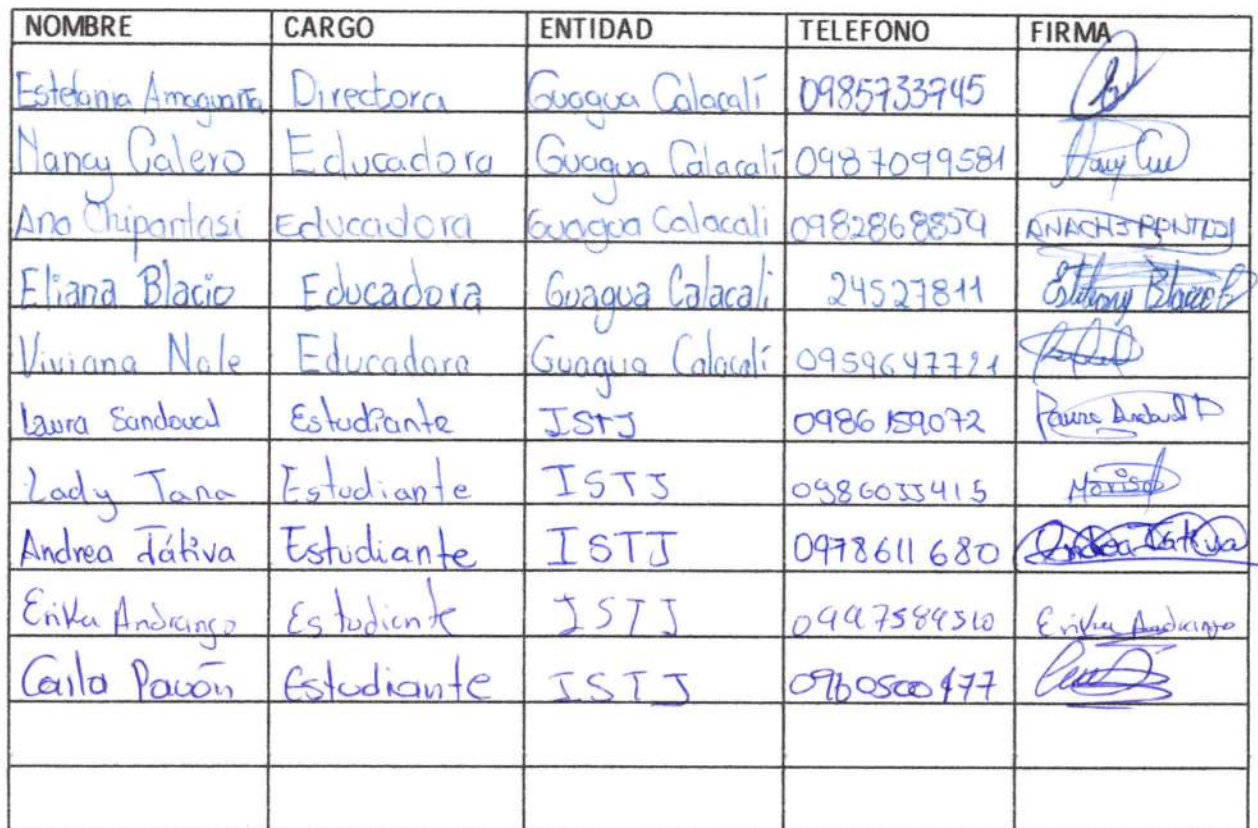 NOMBRE CARGO ENTIDAD TELEFONO FIRMA
Estefania Amaguaña Directora Guagua Calacalí 0985733745
Nancy Calero Educadora Guagua Calacalí 0987099581
Ana Chipantasi Educadora Guagua Calacali 0982868859 ANACHIPANTASI
Eliana Blacio Educadora Guagua Calacali 24527811
Viviana Nale Educadora Guagua Calacalí 0959647721
Laura Sandoval Estudiante ISTJ 0986159072
Lady Tana Estudiante ISTJ Marisol
Andrea Tátiva Estudiante ISTJ 0978611680 Andrea Tátiva
Erika Andrango Estudiante ISTJ Erika Andrango
Carla Pavón Estudiante ISTJ